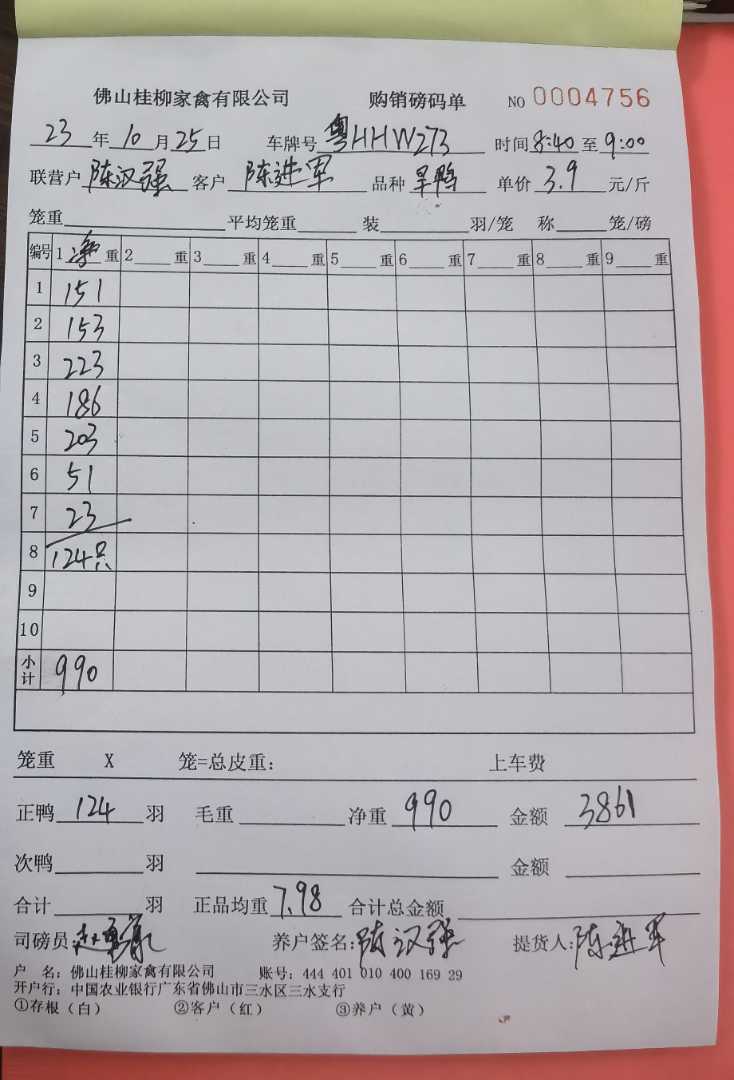 佛山桂柳家禽有限公司 购销磅码单 NO 0004756
23年10月25日 车牌号粤HHW273 时间8:40至9:00
联营户陈汉强 客户陈进军 品种旱鸭 单价3.9元/斤
笼重 平均笼重 装 羽/笼 称 笼/磅
编号 1净重 2 重 3 重 4 重 5 重 6 重 7 重 8 重 9 重
1 151
2 153
3 223
4 186
5 203
6 51
7 23
8 124只
9
10
小计 990
笼重 X 笼=总皮重: 上车费
正鸭124羽 毛重 净重990 金额3861
次鸭 羽 金额
合计 羽 正品均重7.98 合计总金额
司磅员: 养户签名:陈汉强 提货人:陈进军
户 名:佛山桂柳家禽有限公司 账号:444 401 010 400 169 29
开户行:中国农业银行广东省佛山市三水区三水支行
①存根(白) ②客户(红) ③养户(黄)